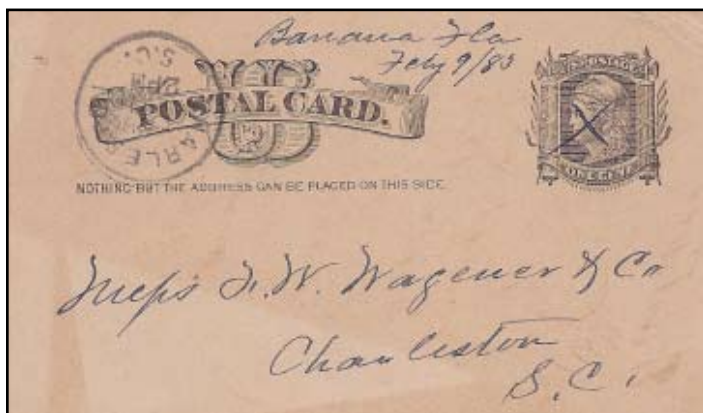 Banana Fla
Feby 9/83
U.S. POSTAGE
US
POSTAL CARD.
S.C.
ONE CENT
NOTHING BUT THE ADDRESS CAN BE PLACED ON THIS SIDE.
X
Messs F. W. Wagener & Co
Charleston
S. C.